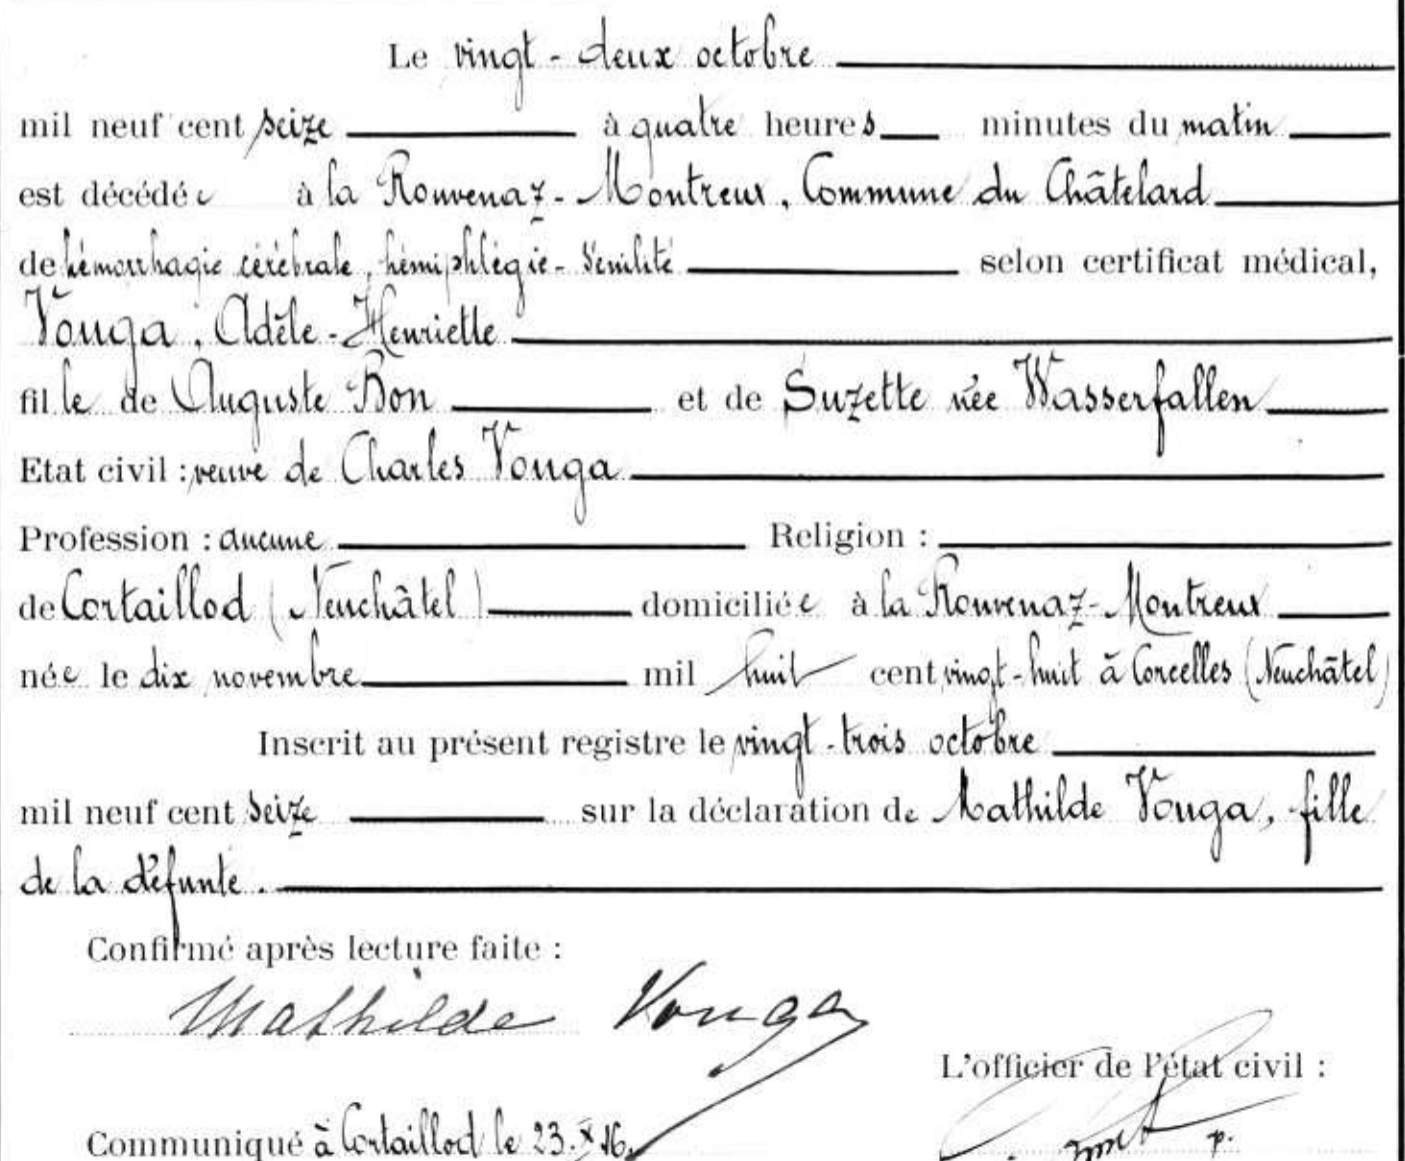 Le vingt-deux octobre
mil neuf cent seize à quatre heures minutes du matin
est décédée à la Rouvenaz-Montreux, Commune du Châtelard
de hémorrhagie cérébrale, hémiphlégie-Sénilité selon certificat médical,
Vouga, Adèle-Henriette
fille de Auguste Bon et de Suzette née Wasserfallen
Etat civil : veuve de Charles Vouga
Profession : aucune Religion :
de Cortaillod (Neuchâtel) domiciliée à la Rouvenaz-Montreux
née le dix novembre mil huit cent vingt-huit à Corcelles (Neuchâtel)
Inscrit au présent registre le vingt-trois octobre
mil neuf cent seize sur la déclaration de Mathilde Vouga, fille
de la défunte.
Confirmé après lecture faite :
Mathilde Vouga
L'officier de l'état civil :
Communiqué à Cortaillod le 23.X.16. p.